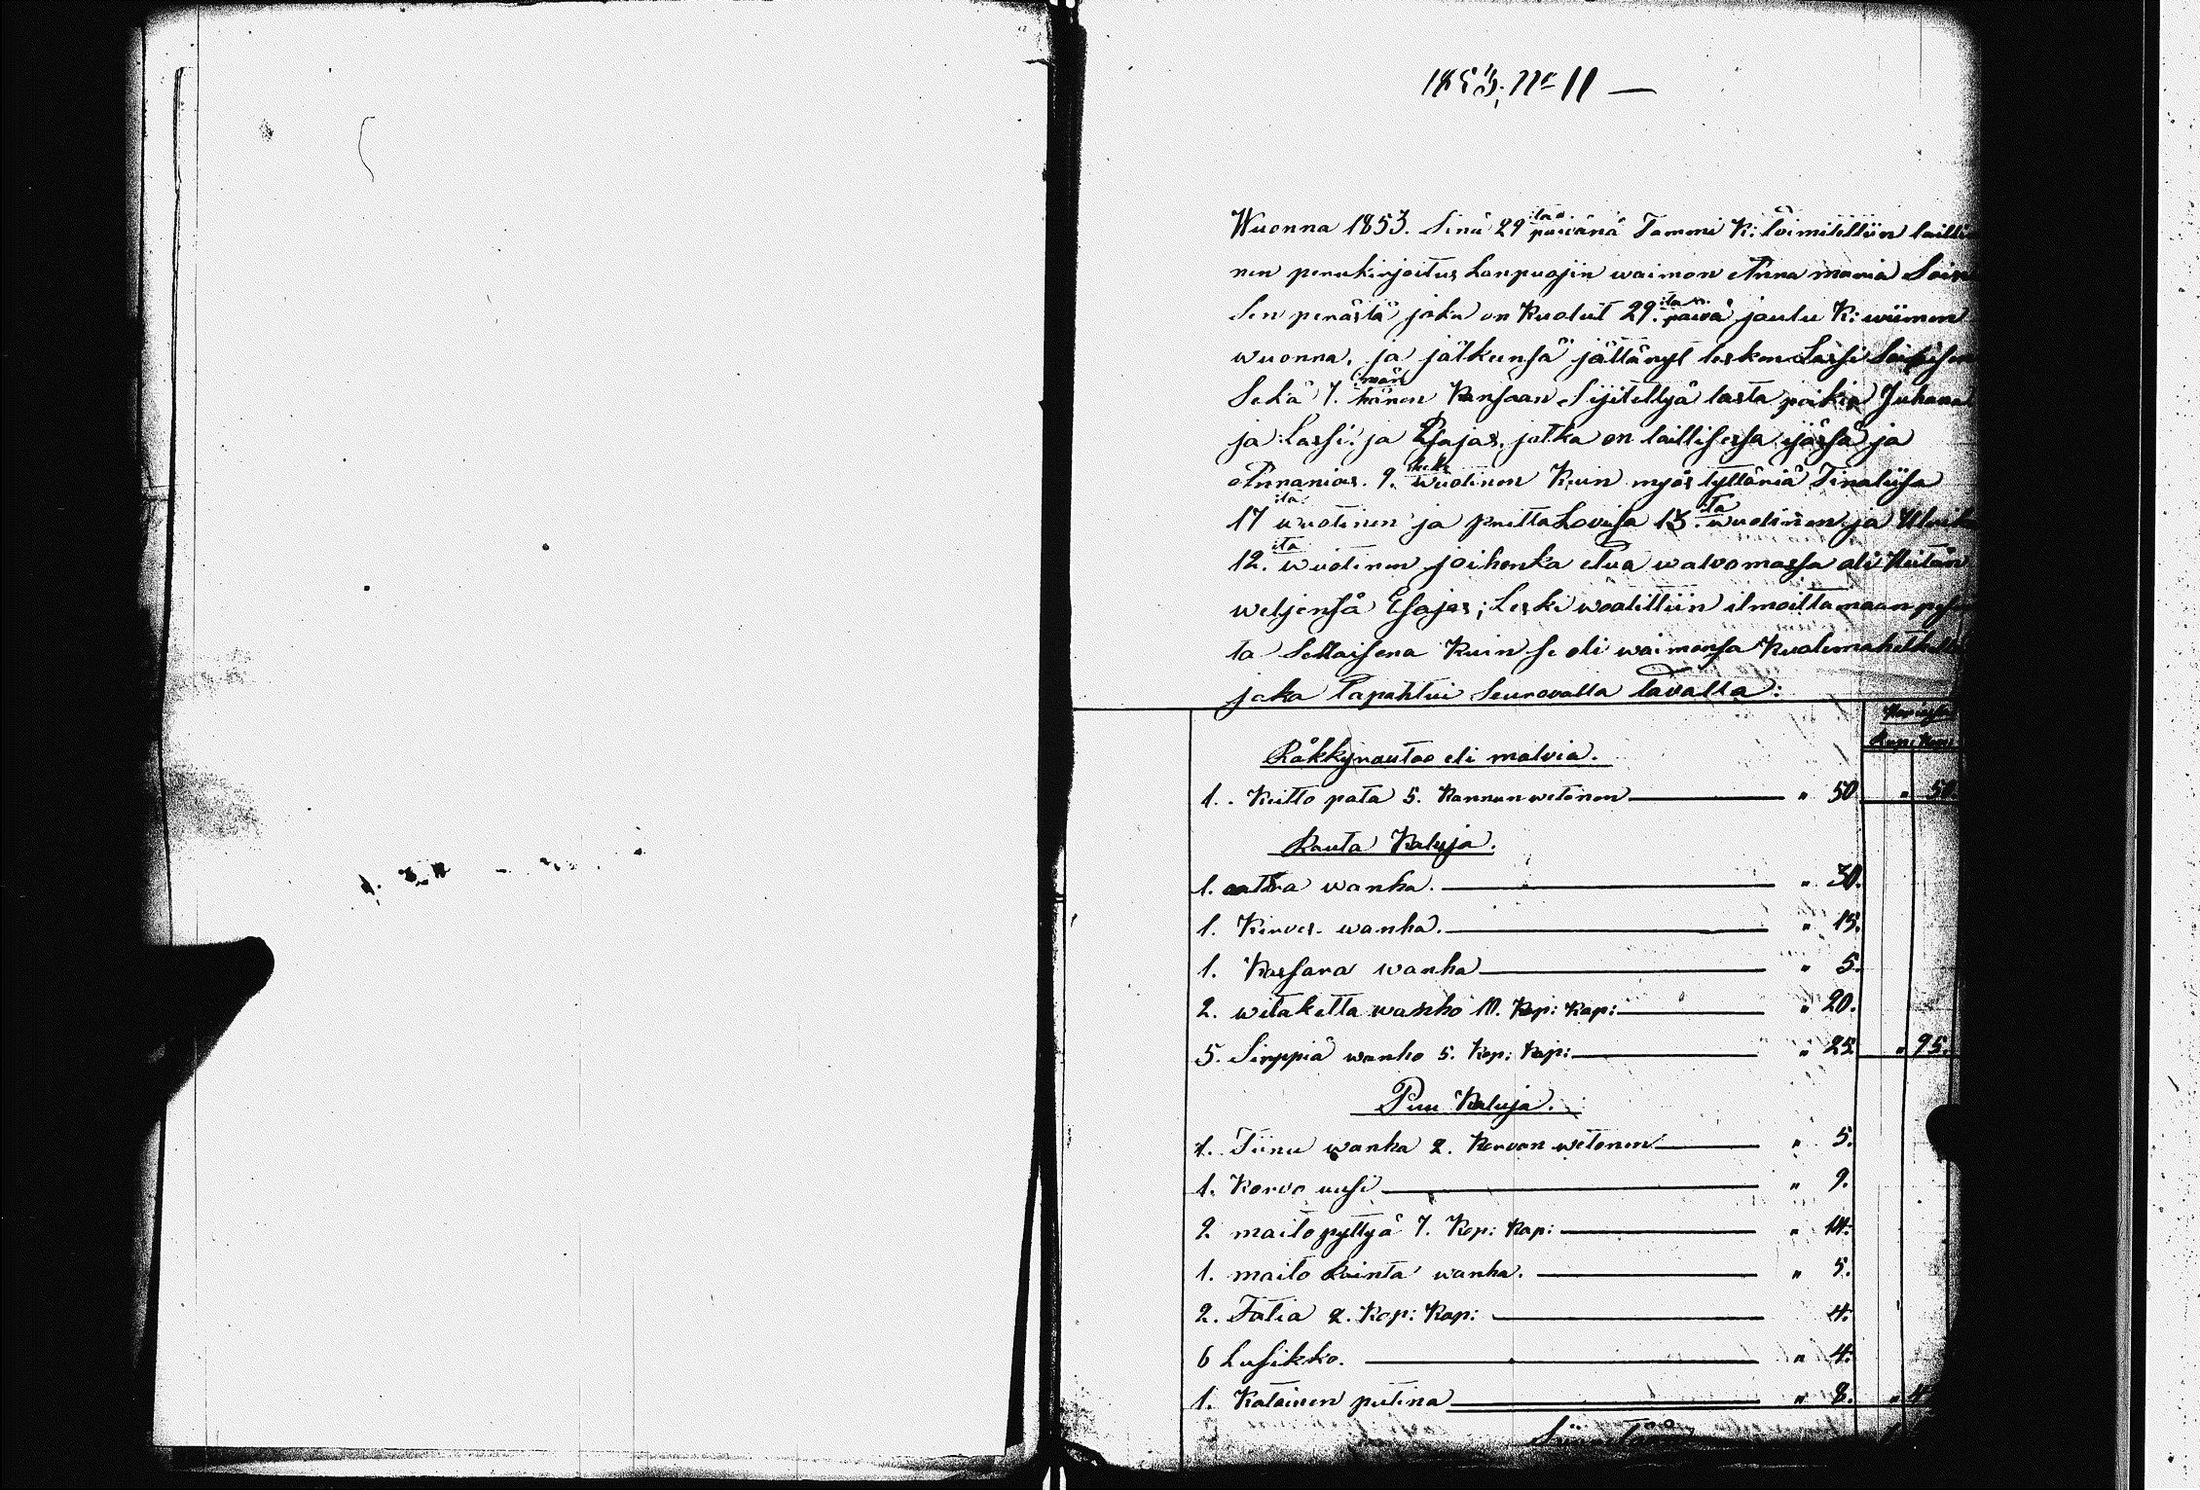 1853. No 11 —
Wuonna 1853. Sinä 29 :tää päivänä Tammi K: toimitettiin lailli
nen perukirjoitus Lanpuojin waimon Anna maria Soini
sen perästä joka on kuolut 29. :tä päivä joulu K: wiimen
wuonna, ja jälkeensä jättänyt lesken Lassi Soinisen
Sekä 7. hänen kansaan Sijitettyä lasta poikia Juhana
ja Lassi. ja Esajas, jotka on laillisessa ijässä ja
Annanias. 9. wuotinen Kuin myös tyttäriä Tinaliisa
17 :ta wuotinen ja priitta Lovisa 13 :ta wuotinen ja Ulrika
12. :ta wuotinen joihenka etua walvomassa oli Heitän
weljensä Esajas; Leski waatittiin ilmoittamaan pesän
tä Sellaisena Kuin se oli waimonsa Kuolemahetkellä
joka Tapahtui Seuravalla tavalla:
Rup: Kop:
Råkkyrautaa eli malvia.
1. Keitto pata 5. Kannun wetänen " 50 " 50.
Rauta Kaluja.
1. aatra wanha. " 30.
1. Kirves wanha. " 15.
1. Kassara wanha " 5.
2. witaketta wanho 10. Kop: Kap: " 20.
5. Sirppiä wanho 5. Kop: Kap: " 25 " 95.
Puu Kaluja.
1. Tiinu wanha 2. Korvon wetänen " 5.
1. Korvo uusi " 9.
2. maitopyttyä 7. Kop: Kap: " 14.
1. maito Rainta wanha. " 5.
2. Fatia 2. Kop: Kap: 4.
6 Lusikko. " 4.
1. Katainen putina " 8. " 4
Siirretään